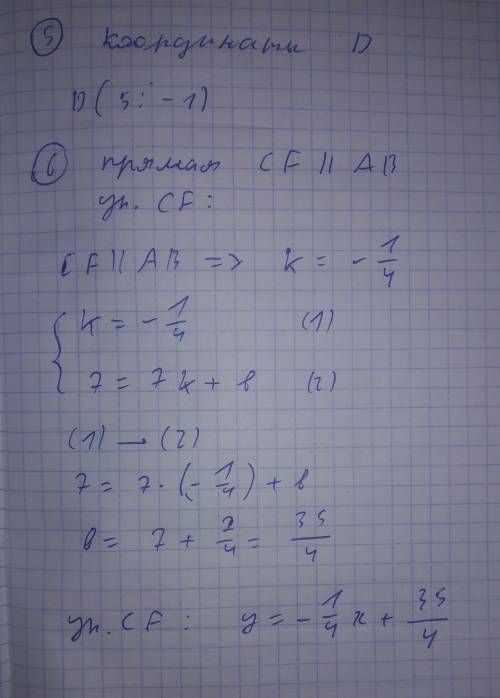 5 координаты D
D(5; -1)
6 прямая CF || AB
ур. CF:
CF || AB => k = - 1/4
{ k = - 1/4 (1)
7 = 7k + b (2)
(1) → (2)
7 = 7 · (- 1/4) + b
b = 7 + 7/4 = 35/4
ур. CF: y = - 1/4 x + 35/4